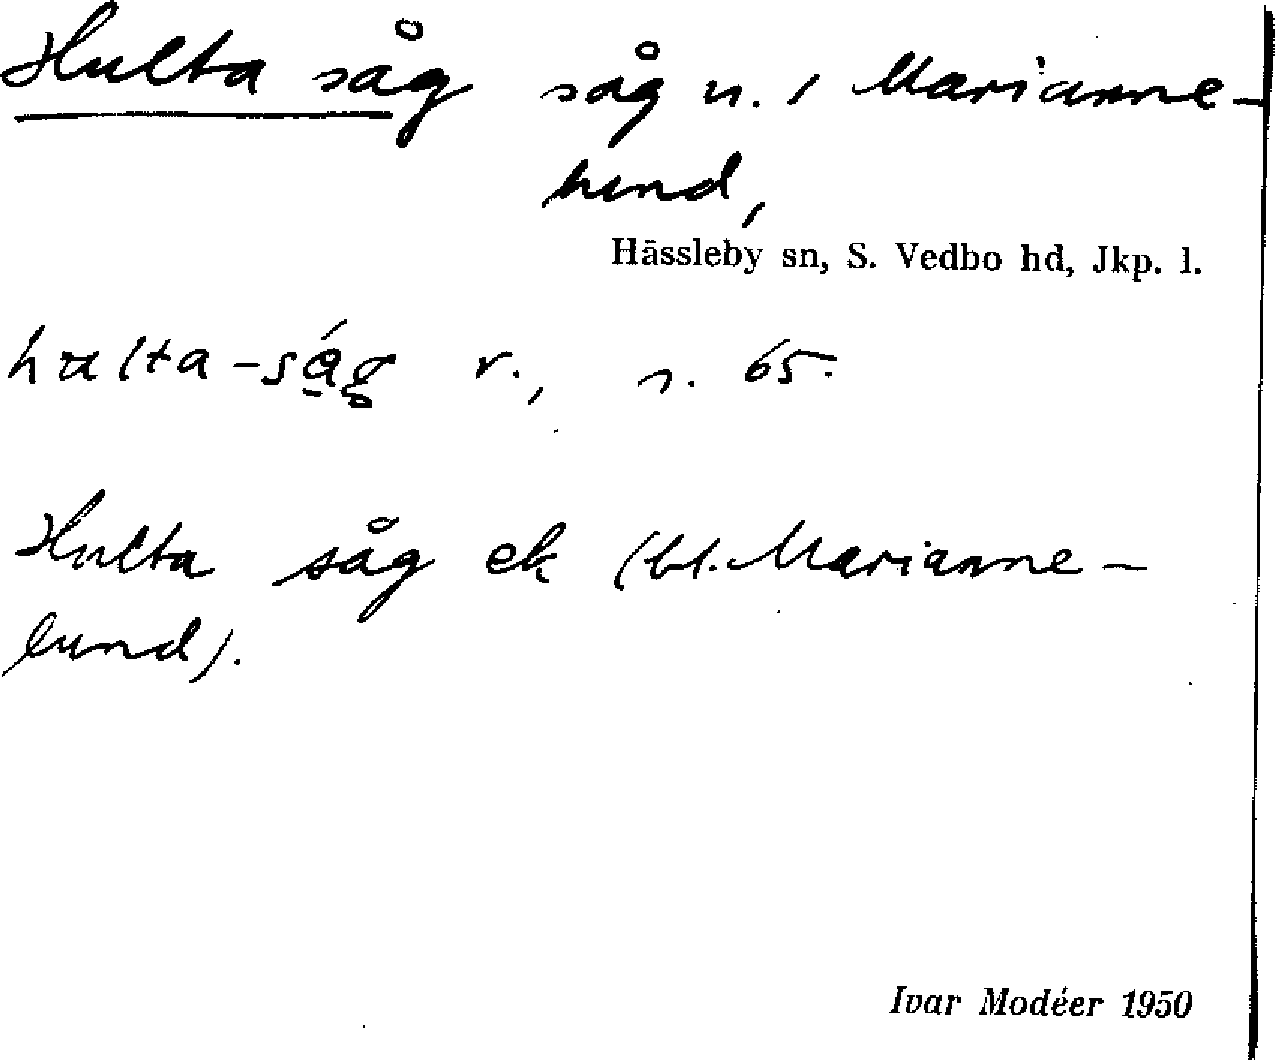 Hulta såg såg n. i Marianne-
lund,
Hässleby sn, S. Vedbo hd, Jkp. l.
hulta-såg r., s. 65.
Hulta såg ek (bl. Marianne-
lund).
Ivar Modéer 1950